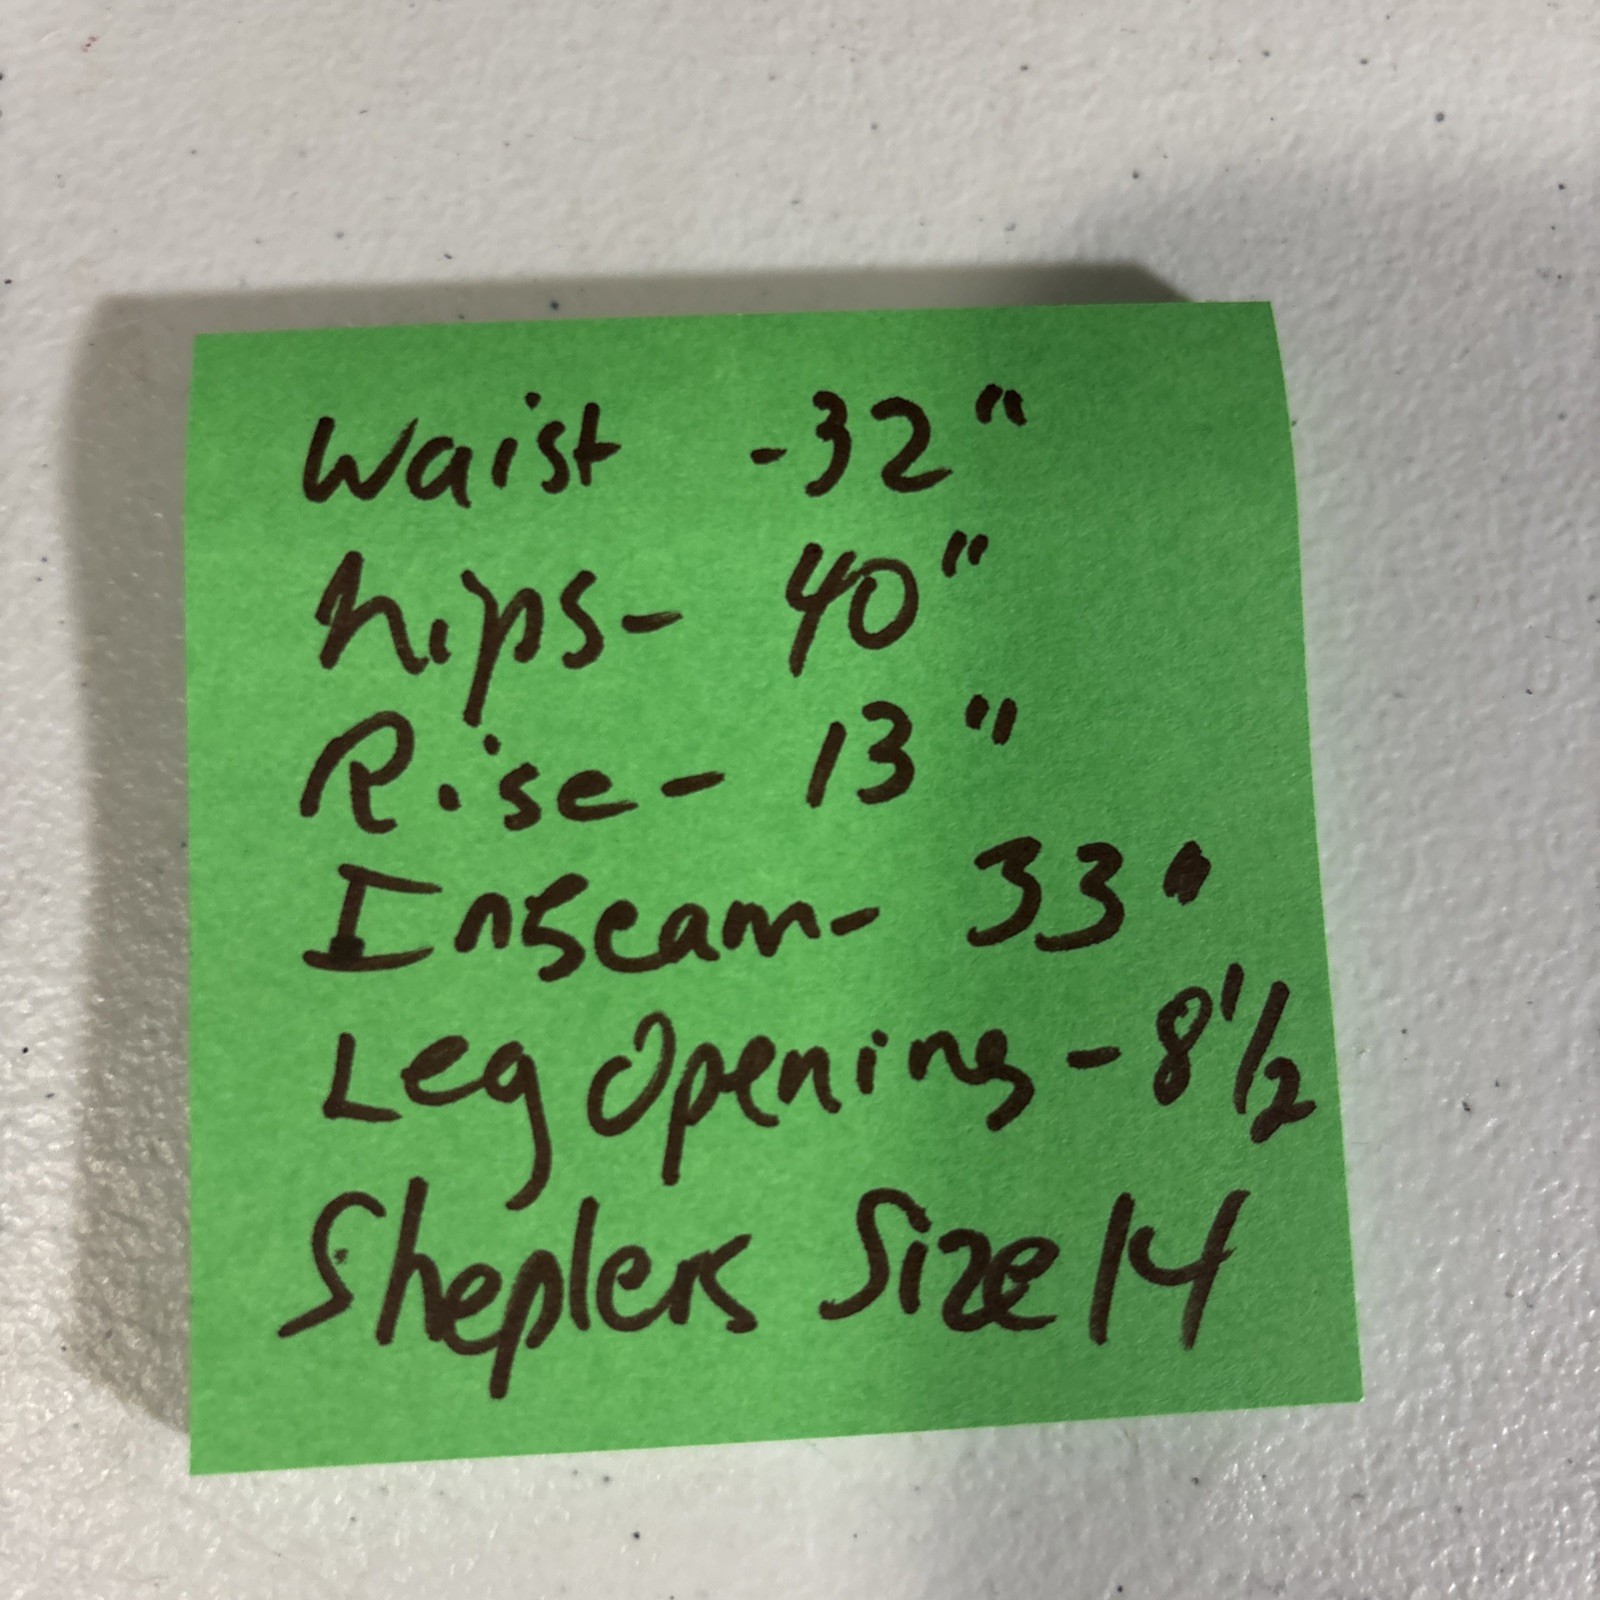 Waist - 32"
hips - 40"
Rise - 13"
Inseam - 33"
Leg Opening - 8 1/2
Sheplers Size 14